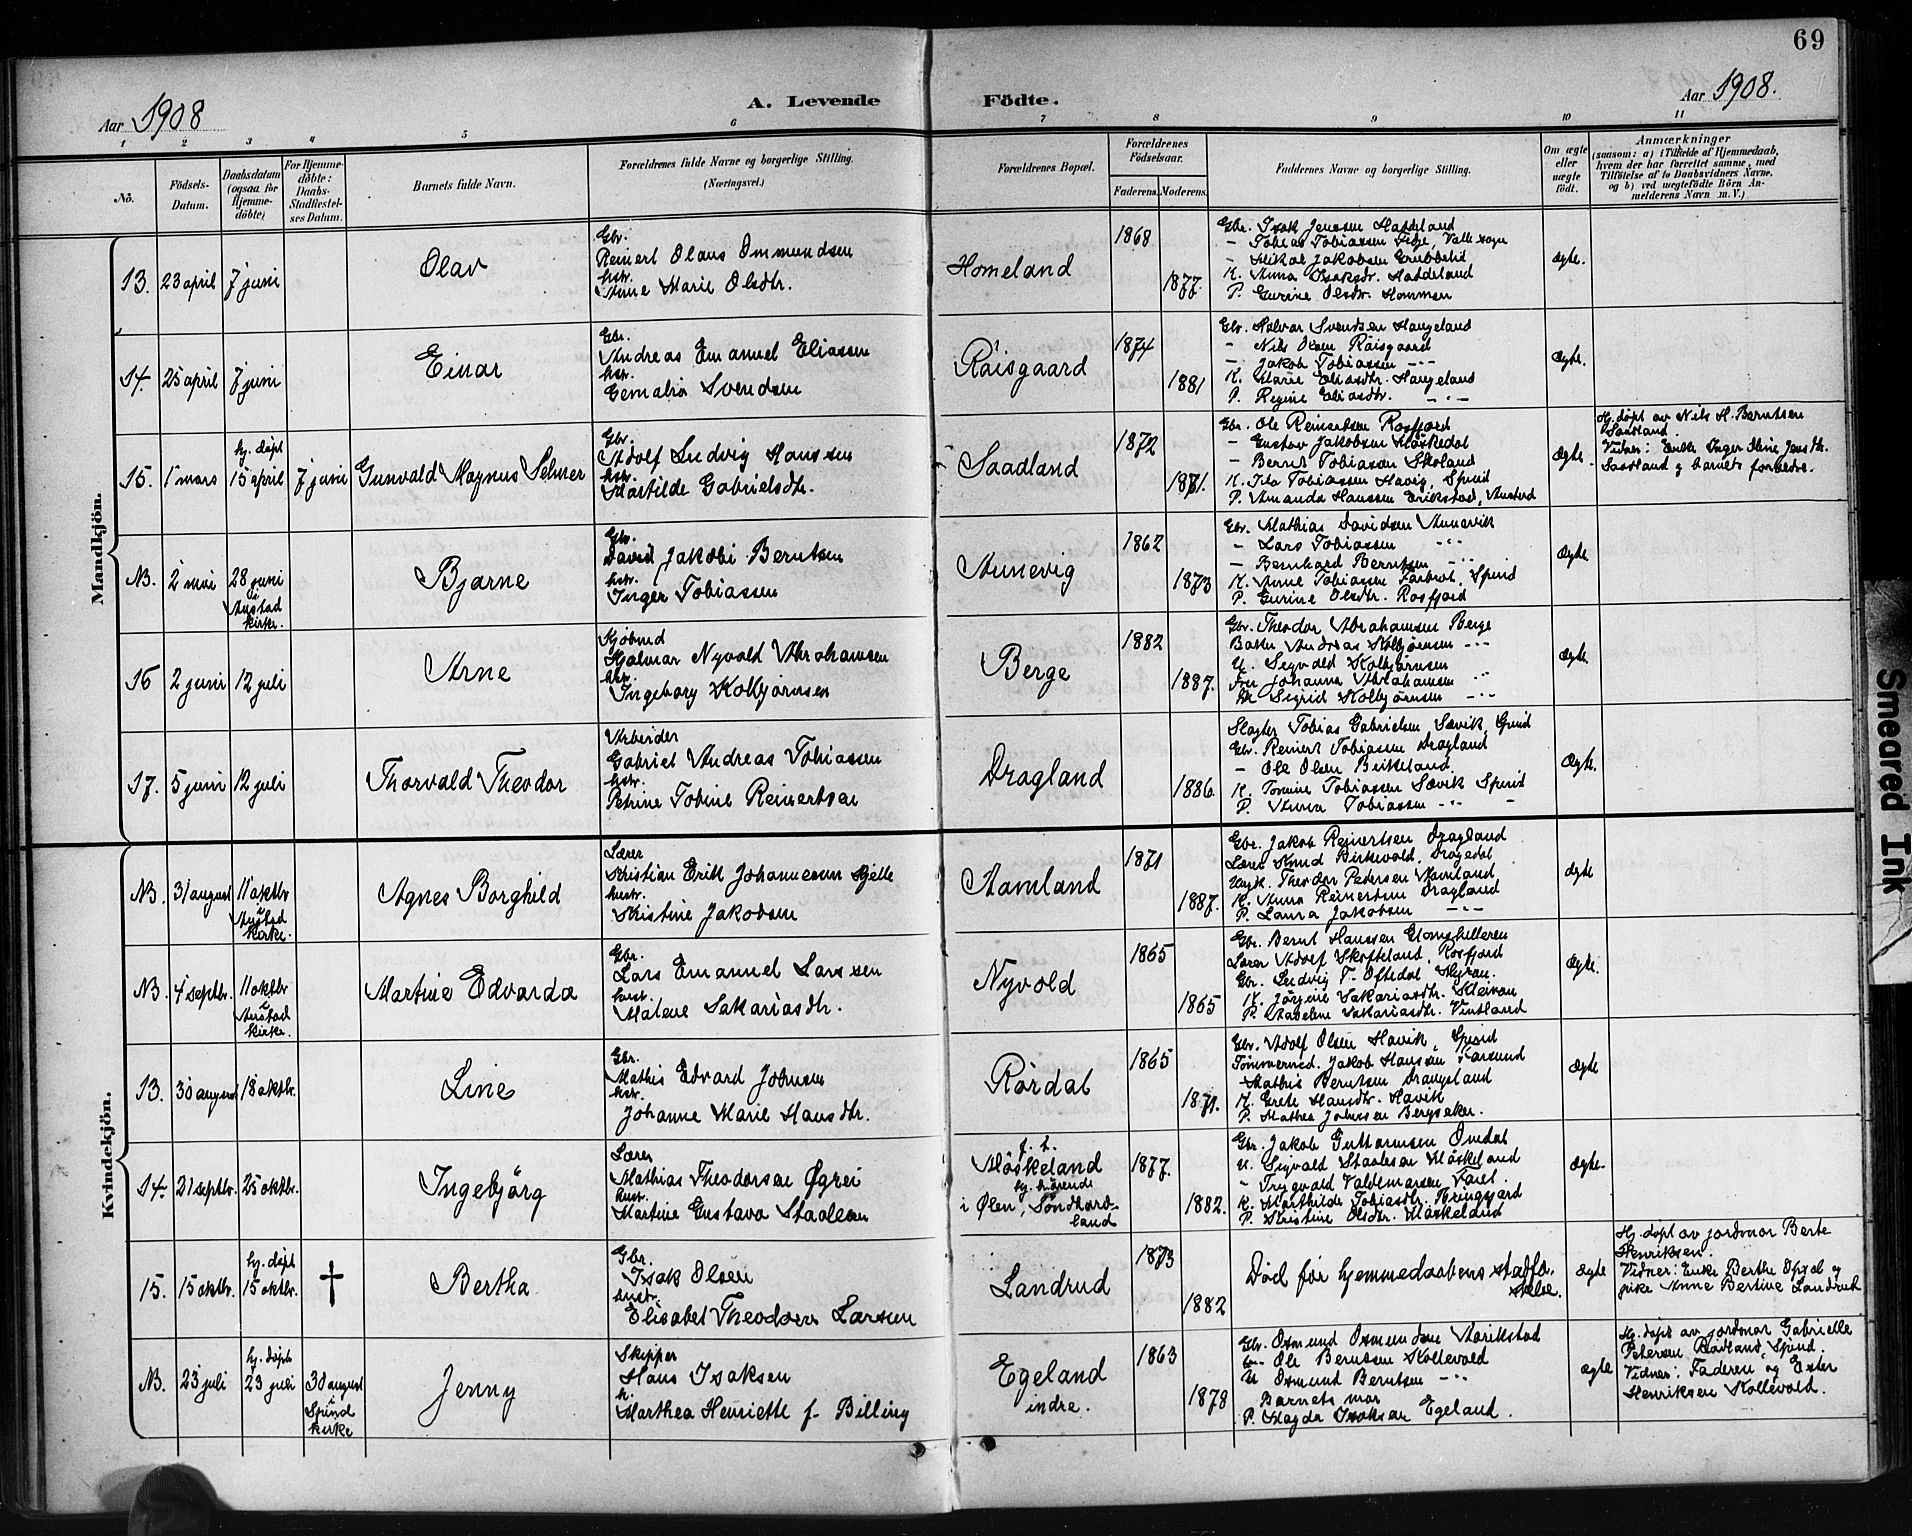 69
Aar 1908
A. Levende Födte.
Aar 1908.
1 2 3 4 5 6 7 8 9 10 11
No.
Födsels-Datum.
Daabsdatum (ogsaa for Hjemmedöbte)
For Hjemmedöbte: Daabs-Stadfæstelses Datum.
Barnets fulde Navn.
Forældrenes fulde Navne og borgerlige Stilling. (Næringsvei.)
Forældrenes Bopæl.
Forældrenes Födselsaar.
Faderens. Moderens.
Faddernes Navne og borgerlige Stilling.
Om ægte eller uægte födt.
Anmærkninger
(saasom: a) i Tilfælde af Hjemmedaab, hvem der har forrettet samme, med Tilföielse af to Daabsvidners Navne, og b) ved uægtefödte Börn Anmelderens Navn m. V.)
Mandkjön.
13. 23 april 7 juni
Olav
Gbr.
Reinert Olaus Ommundsen
hstr.
Anne Marie Olsdtr.
Homeland
1868
1877.
Gbr. Isak Jensen Haddeland
- Tobias Tobiassen Eige, Valle sogn
- Mikal Jakobsen Grubbelid
K. Anna Isaksdr. Haddeland
P. Gurine Olsdtr. Hommen
Ægte.
14. 25 april 7 juni
Einar
Gbr.
Andreas Emanuel Eliassen
hstr.
Gemalia Svendsen
Röisgaard
1874
1881
Gbr. Halvar Svendsen Haugeland
- Nils Olsen Röisgaard
- Jakob Tobiassen -"-
K. Marie Eliasdtr. Haugeland
P. Regine Eliasdtr. -"-
Ægte.
15. 1 mars hj. döpt 15 april 7 juni
Gunvald Magnus Selmer
Gbr.
Adolf Ludvig Hanssen
hstr.
Martilde Gabrielsdtr.
Saadland
1872
1871.
Gbr. Ole Reinertsen Rosfjord
- Gustav Jakobsen Möskedal
- Bernt Tobiassen Skoland
K. Ida Tobiassen Havig, Spind
P. Amanda Hanssen Erikstad, Austad
Ægte.
Hj. döpt av Nils H. Berntsen
Saadland
Vidner: Enke Inger Oline Jensdtr.
Saadland og barnets forældre.
NB. 2 mai 28 juni i Austad kirke.
Bjarne
Gbr.
David Jakobi Berntsen
hstr.
Inger Tobiassen
Aunevig
1862
1873
Gbr. Mathias Davidsen Aunevik
- Lars Tobiassen -"-
- Bernhard Berntsen -"-
K. Anne Tobiassen Farbrot, Spind
P. Gurine Olsdtr. Rosfjord
Ægte
16 2 juni 12 juli
Arne
Kjöbmd
Hjalmar Nyvold Abrahamsen
hstr.
Ingeborg Kolbjörnsen
Berge
1882
1887.
Gbr. Theodor Abrahamsen Berge
Baker Andreas Kolbjörnsen -"-
U. Sigvald Kolbjörnsen
Fru Johanna Abrahamsen -"-
Sigrid Kolbjörnsen -"-
Ægte.
17. 5 juni 12 juli
Thorvald Theodor
Arbeider
Gabriel Andreas Tobiassen
hstr.
Petrine Tobine Reinertsen
Dragland
1886.
Slagter Tobias Gabrielsen Sævik, Spind
Gbr. Reinert Tobiassen Dragland
- Ole Olsen Birkeland.
K. Tomine Tobiassen Sævik Spind
P. Anna Tobiassen -"- -
Ægte.
Kvindekjön.
NB. 31 august 11 oktbr i Austad kirke.
Agnes Borghild
Lærer
Kristian Erik Johannesen Gjelle
hustr.
Kristine Jakobsen
Aamland
1871
1887.
Gbr. Jakob Reinertsen Dragland
Lærer Knud Birkevold, Dragedal
Ungk. Theodor Pedersen Aamland
K. Anna Reinertsen Dragland
P. Laura Jakobsen -"-
Ægte
NB. 4 septbr. 11 oktbr i Austad kirke.
Martine Edvarda
Gbr.
Lars Emanuel Larssen
hustr.
Malene Sakariasdtr.
Nyvold
1865
1865
Gbr. Bernt Hanssen Glomshelleren
Lærer Adolf Skofteland, Rosfjord
Gbr. Ludvig T. Oftedal
K. Jörgine Sakariasdtr. Kleivan
P. Aadeline Sakariasdtr. Vintland
Ægte.
13. 30 august 18 oktbr.
Line
Gbr.
Mathis Edvard Johnsen
hstr.
Johanne Marie Hansdtr.
Rördal
1865
1871.
Gbr. Adolf Olsen Havik, Spind
Tömmermd. Jakob Hanssen Farsund
Mathis Berntsen Drangeland
K. Grete Hansdtr. Havik
P. Mathea Johnssen Bergsaker.
Ægte
14. 21 septbr. 25 oktbr.
Ingebjörg
Lærer
Mathias Theodorsen Øgrei
hustr.
Martine Gustava Staalesen
f. t.
Möskeland
hj. hörende
i Ølen, Söndhordland
1877.
1882.
Gbr. Jakob Guttormsen Omdal
U. Sigvald Staalesen Möskeland
- Trygvald Valdemarsen Faret
K. Marthilde Tobiasdtr. Ramgjord
P. Kristine Olsdtr. Möskeland
Ægte.
15. 15 oktbr. hj. döpt 15 oktbr. †
Bertha
Gbr.
Isak Olsen
hustr.
Elisabet Theodora Larsen
Landrud
1873
1882
Död før hjemmedaabens stadfæstelse.
Ægte
Hj. döpt av jordmor Berte
Henriksen.
Vidner: Enke Berthe Opsal og
pike Anne Bertine Landrud
NB. 23 juli hj. döpt 23 juli 30 august i Spind kirke
Jenny
Skipper
Hans Isaksen
h.
Marthea Henriette f. Billing
Egeland
indre.
1863
1878
Gbr. Osmund Osmundsen Aarikstad
Ole Berntsen Kollevold
U Osmund Berntsen -"-
Barnets mor
P. Magda Isaksen Egeland.
Ægte
Hj. döpt av jordmor Gabrielle
Petersen Rödland, Spind.
Vidner: Faderen og Ester
Henriksen Kollevold.
Smeared Ink